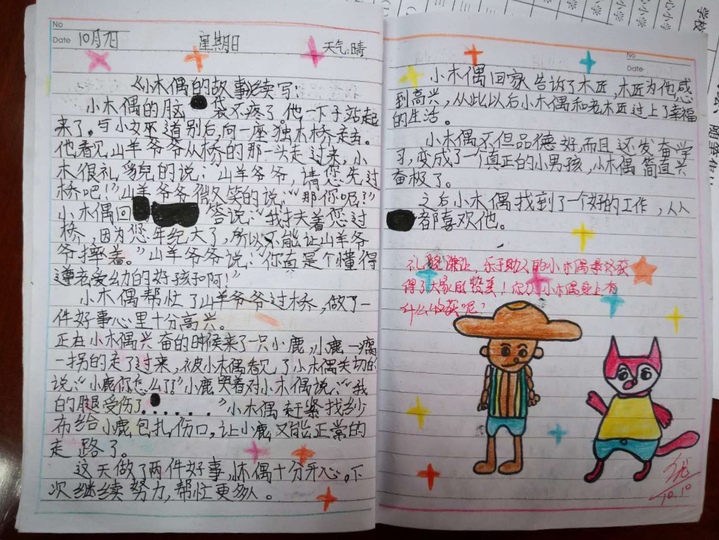 No
Date 10月7日 星期日 天气:晴
《小木偶的故事》续写:
小木偶的脑袋不疼了。他一下子站起
来了。与小女巫道别后,向一座独木桥走去。
他看见山羊爷爷从桥的那一头走过来,小
木偶很礼貌的说:“山羊爷爷,请您先过
桥吧!”山羊爷爷微笑的说:“那你呢?”
小木偶回答说:“我扶着您过
桥,因为您年纪大了,所以不能让山羊爷
爷摔着。”山羊爷爷说:“你真是个懂得
尊老爱幼的好孩子啊!”
小木偶帮忙了山羊爷爷过木桥,做了一
件好事心里十分高兴。
正在小木偶兴奋的时候来了一只小鹿,小鹿一瘸
一拐的走了过来,被小木偶看见了小木偶关切的
说:“小鹿你怎么了?”小鹿哭着对小木偶说:“我
的腿受伤了......”小木偶赶紧找纱
布给小鹿包扎伤口,让小鹿又能正常的
走路了。
这天做了两件好事,小木偶十分开心。下
次继续努力,帮忙更多人。
No
Date
小木偶回家告诉了木匠,木匠为他感
到高兴,从此以后小木偶和老木匠过上了幸福
的生活。
小木偶不但品德好,而且还发奋学
习,变成了一个真正的小男孩,小木偶简直兴
奋极了。
之后小木偶找到了一个好的工作,人人
都喜欢他。
礼貌谦让,乐于助人的小木偶最终获
得了大家的赞美!你从小木偶身上有
什么收获呢?
优
10.10
学校